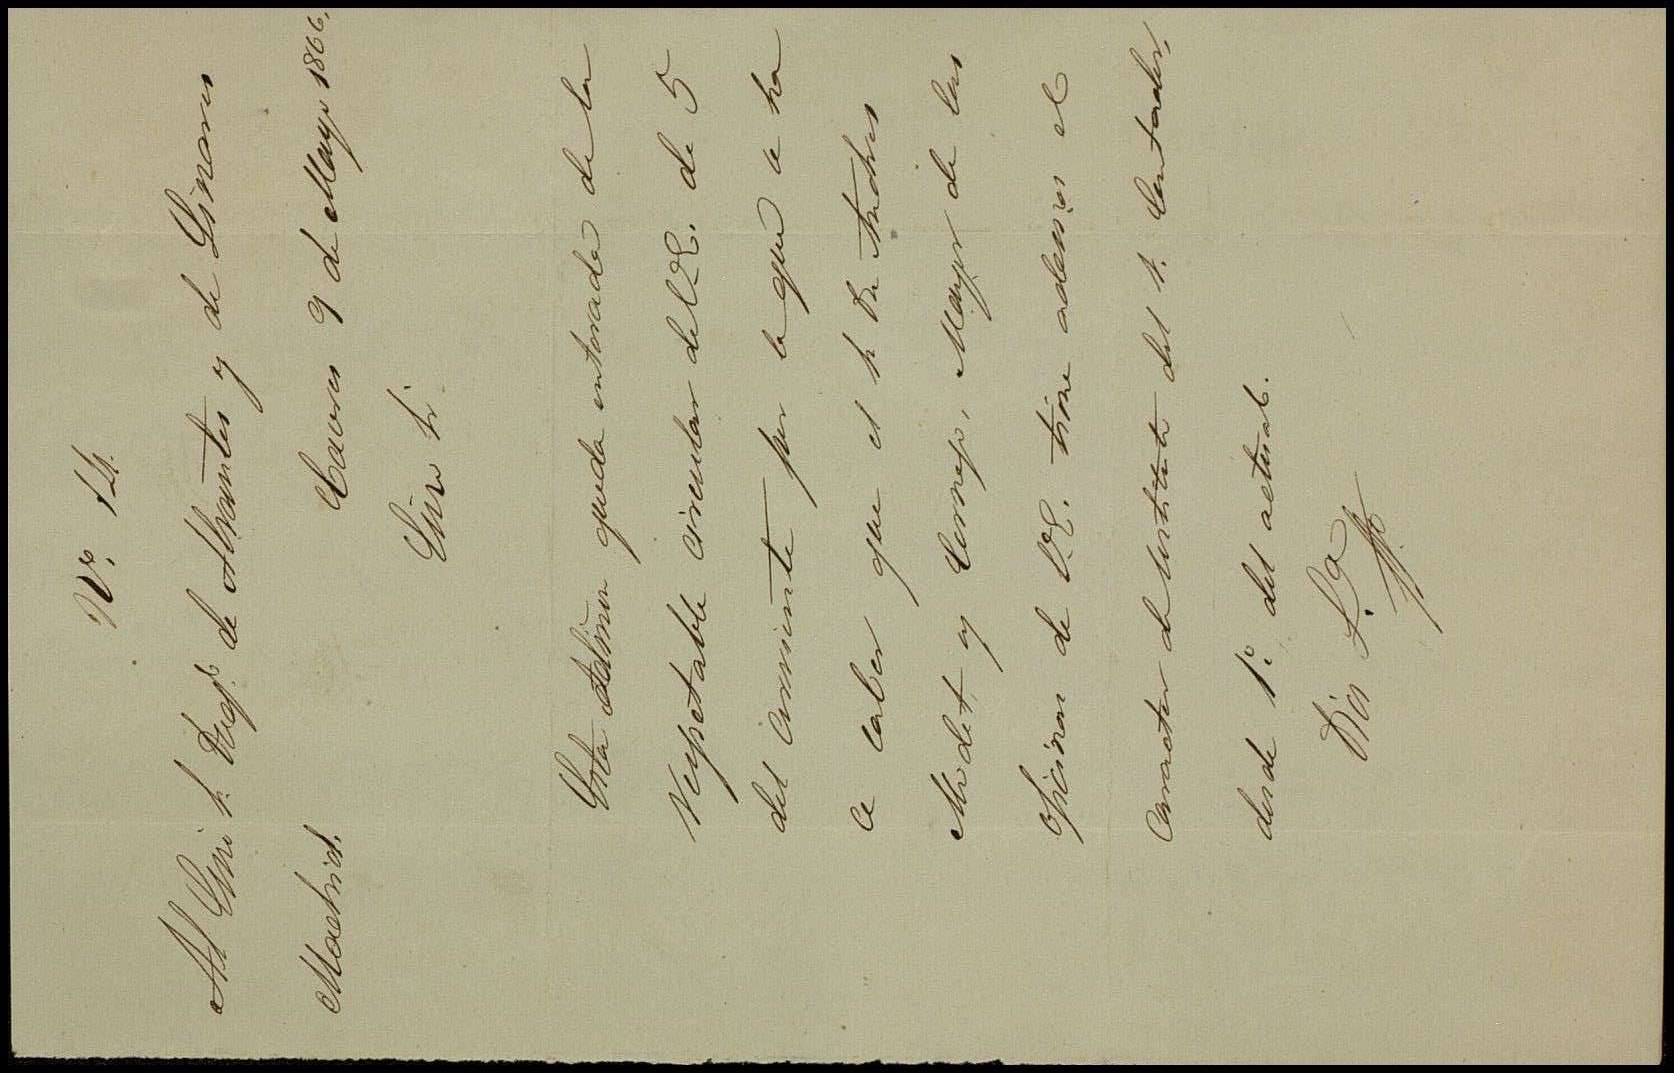 Nº. 14.
Al Exmo Sr. Duqe. de Abrantes y de Linares
Madrid. Cavia 9 de Mayo 1866.
Exmo Sr.
Esta Admon queda enterada de la
respetable circular de V.E. de 5
del corriente por la que se ha
ce saber que el Sr Dn
Modet, y Cornejo, Mayor de las
oficinas de V.E. tiene ademas el
caracter de sustituto del Sr. Contador,
desde 1º. del actual.
Dios